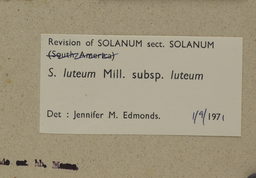 Revision of SOLANUM sect. SOLANUM
(South America)
S. luteum Mill. subsp. luteum
Det : Jennifer M. Edmonds. 1/9/1971